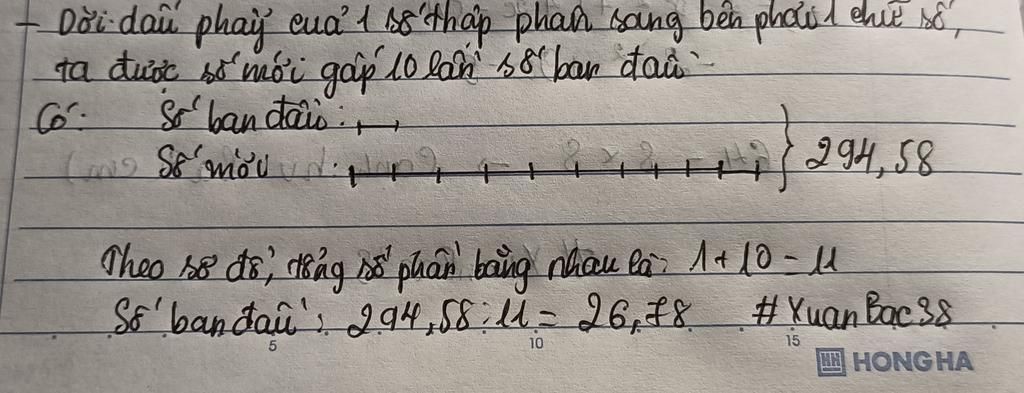 - Dời dấu phẩy của 1 số thập phân sang bên phải 1 chữ số,
ta được số mới gấp 10 lần số ban đầu
Có: Số ban đầu:
Số mới : 294,58
Theo sơ đồ, tổng số phần bằng nhau là: 1+10=11
Số ban đầu: 294,58:11= 26,78 #XuanBac38
5 10 15
HH HONG HA